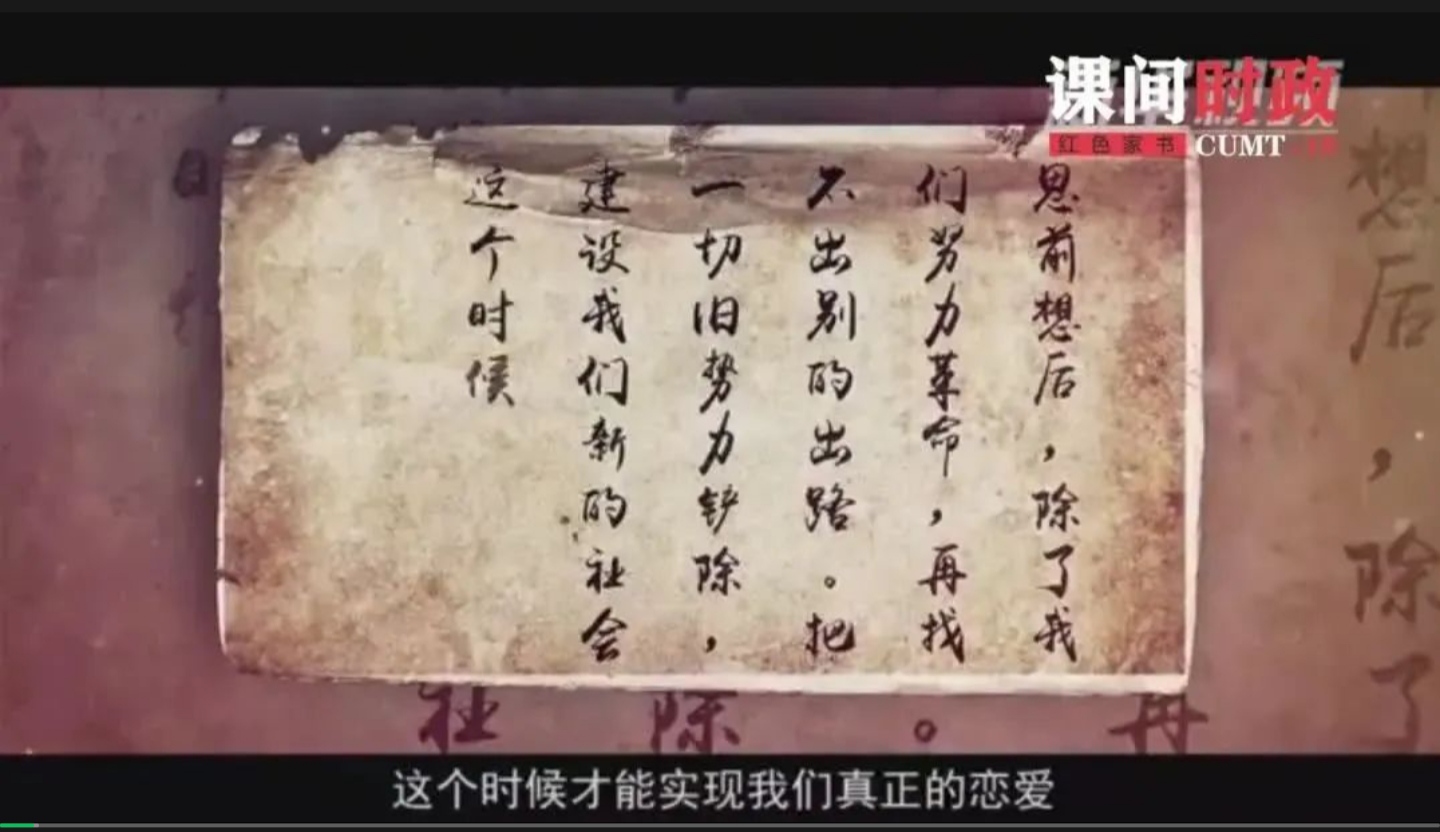 课间时政
红色家书 CUMT
思前想后，除了我
们努力革命，再找
不出别的出路。把
一切旧势力铲除，
建设我们新的社会
这个时候
想后，除了
再
。
除
社
这个时候才能实现我们真正的恋爱